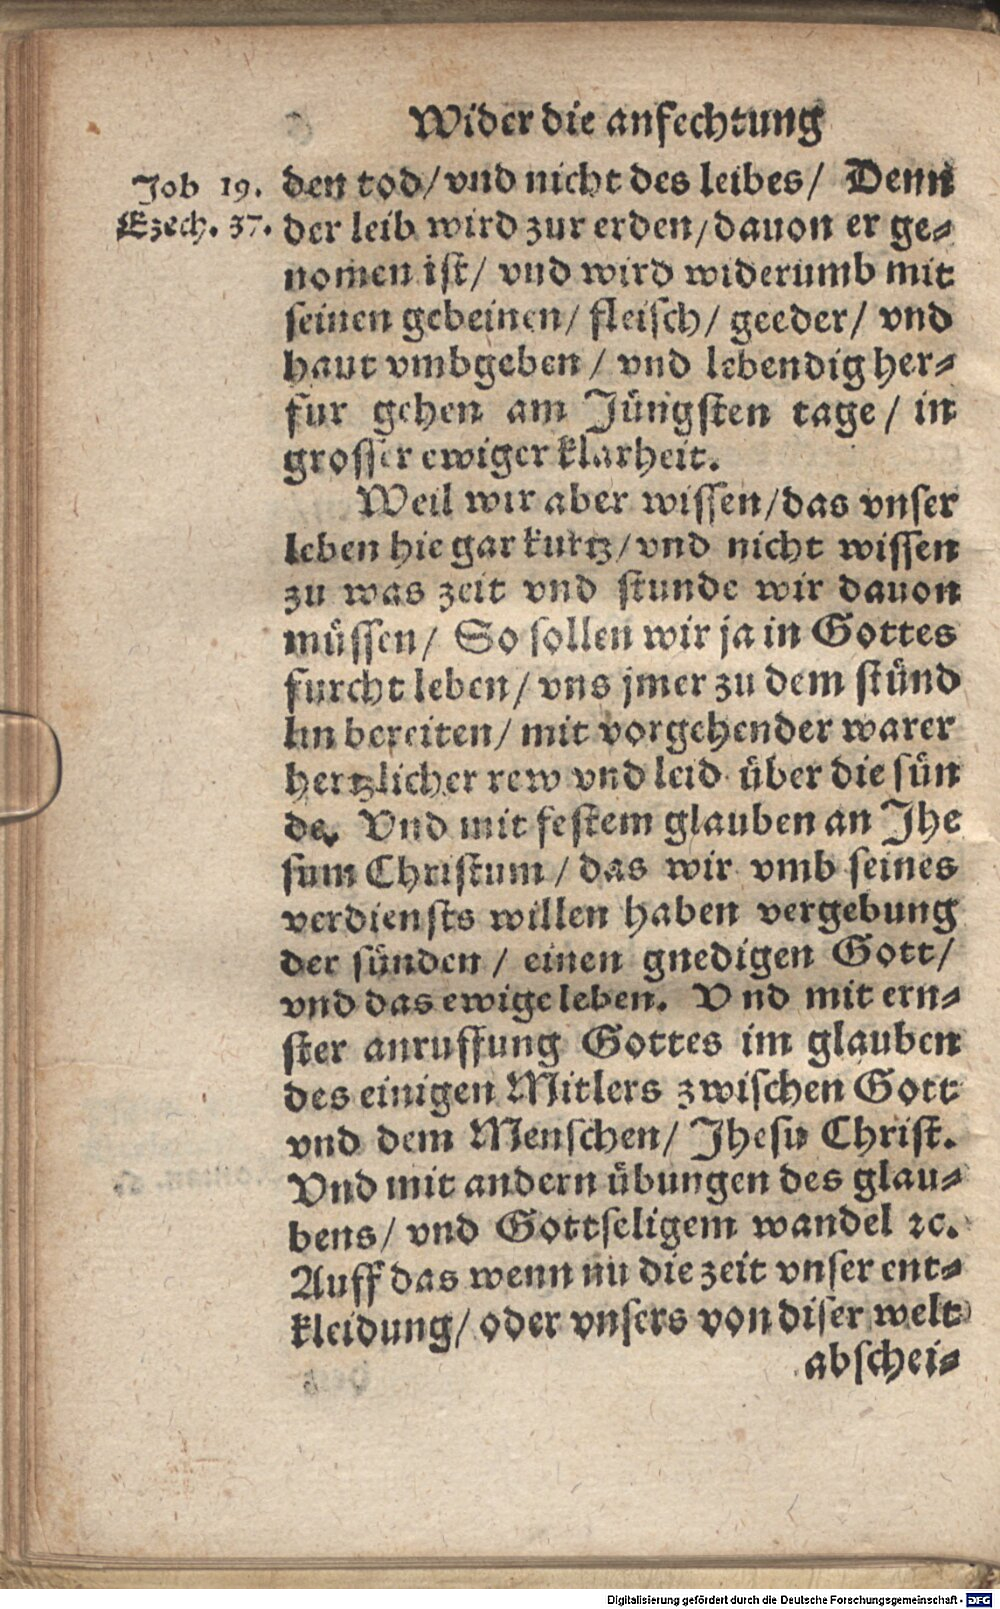 Wider die anfechtung
Job 19.
Ezech. 37.
den tod/ vnd nicht des leibes/ Denn
der leib wird zur erden/ dauon er ge-
nomen ist/ vnd wird widerumb mit
seinen gebeinen/ fleisch/ geeder/ vnd
haut vmbgeben/ vnd lebendig her-
fur gehen am Jüngsten tage/ in
grosser ewiger klarheit.
Weil wir aber wissen/ das vnser
leben hie gar kurtz/ vnd nicht wissen
zu was zeit vnd stunde wir dauon
müssen/ So sollen wir ja in Gottes
furcht leben/ vns jmer zu dem stünd
lin bereiten/ mit vorgehender warer
hertzlicher rew vnd leid über die sün
de. Vnd mit festem glauben an Jhe
sum Christum/ das wir vmb seines
verdiensts willen haben vergebung
der sünden/ einen gnedigen Gott/
vnd das ewige leben. Vnd mit ern-
ster anruffung Gottes im glauben
des einigen Mitlers zwischen Gott
vnd dem Menschen/ Jhesu Christ.
Vnd mit andern übungen des glau-
bens/ vnd Gottseligem wandel ꝛc.
Auff das wenn nu die zeit vnser ent-
kleidung/ oder vnsers von diser welt
abschei-
Digitalisierung gefördert durch die Deutsche Forschungsgemeinschaft - DFG